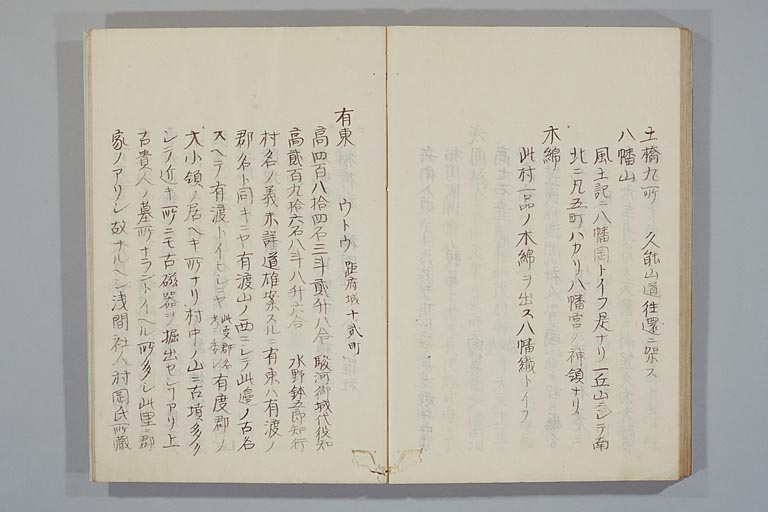 土橋九ヶ所　久能山道往還ニ架ス
八幡山
風土記ニ八幡岡トイフ是ナリ一丘山ニシテ南
北ニ凡五町ハカリ八幡宮ノ神領ナリ
木綿
此村一品ノ木綿ヲ出ス八幡織トイフ
有東　ウトウ　距府城十貳町
高四百八拾四石三斗貳升八合　駿河御城代役知
高貳百九拾六石八斗八升六合　水野鉢五郎知行
村名ノ義未詳道雄案スルニ有東ハ有渡ノ
郡名ト同キニヤ有渡山ノ西ニシテ此邊ノ古名
スヘテ有渡トイヒシニヤ有度郡ノ
大小領ノ居ヘキ所ナリ村中ノ山ニ古墳多ク
シテ近キ所ニモ古磁器ヲ掘出セシアリ上
古貴人ノ墓所ナラントイヘル所多シ此里ニ郡
家ノアリシ故ナルヘシ浅間社人村岡氏所蔵